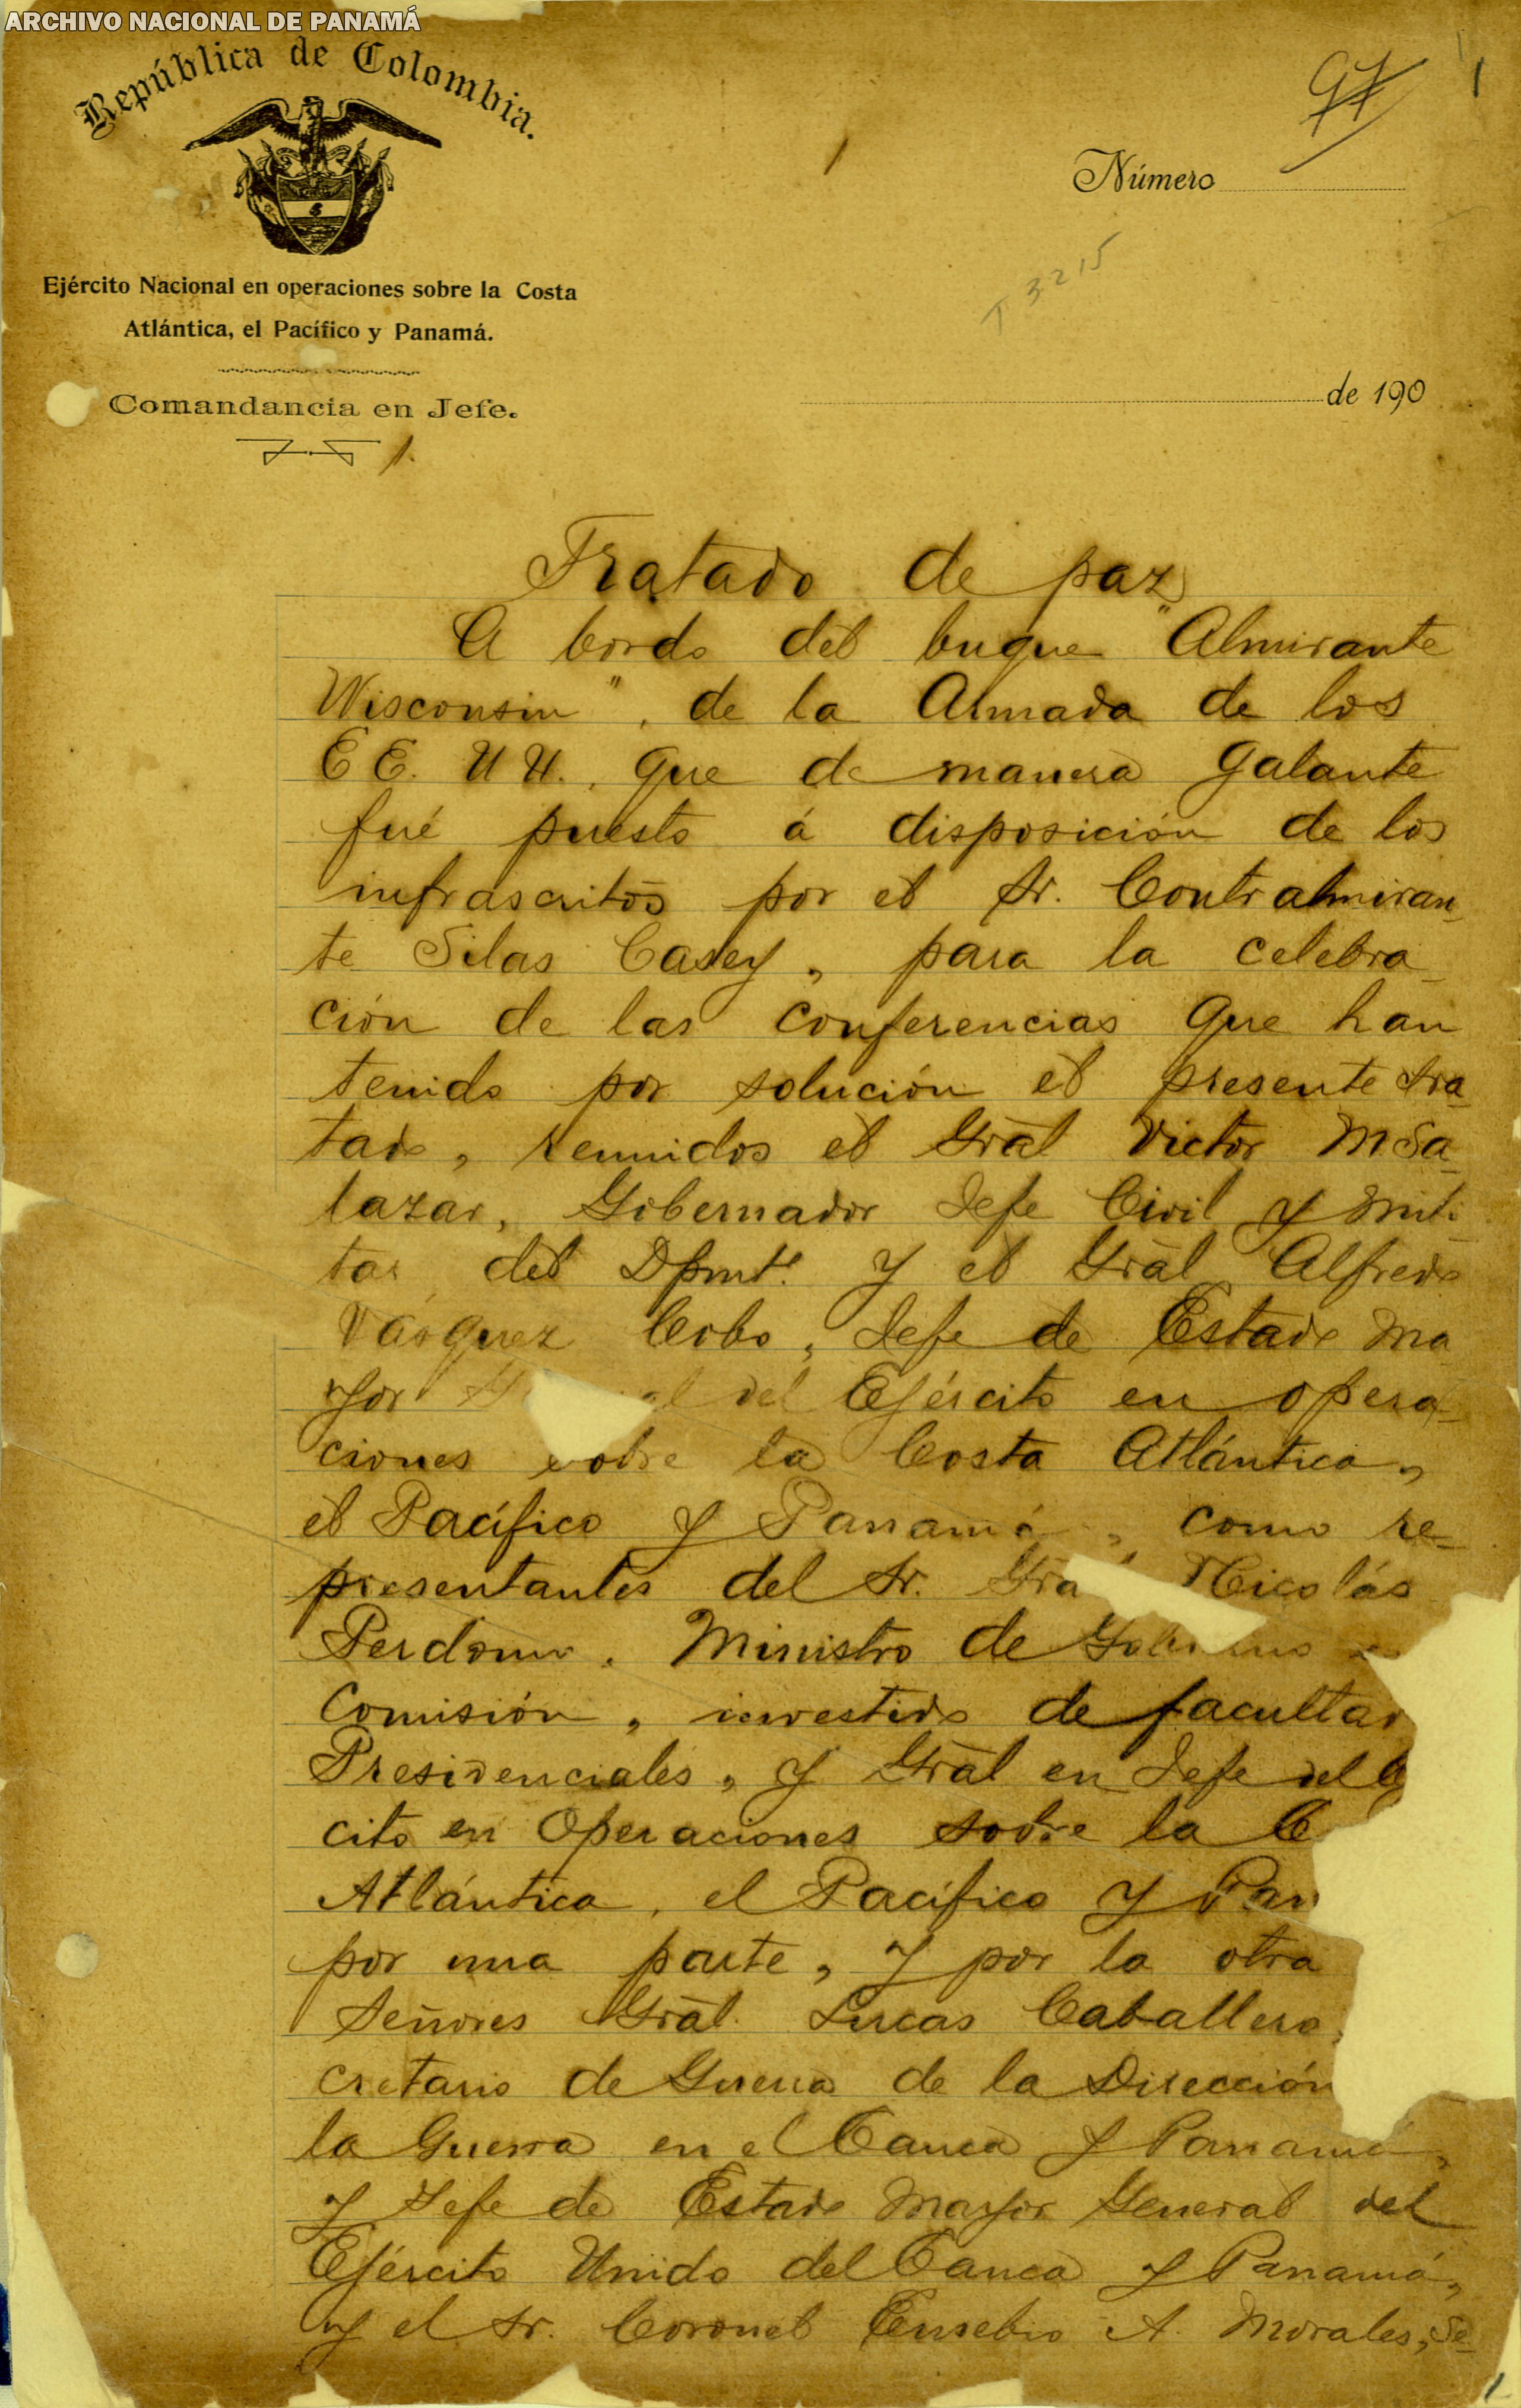 ARCHIVO NACIONAL DE PANAMÁ
República de Colombia.
97
1
1
Número
T 3215
Ejército Nacional en operaciones sobre la Costa
Atlántica, el Pacífico y Panamá.
Comandancia en Jefe.
de 190
1.
Tratado de paz
A bordo del buque "Almirante
Wisconsin", de la Armada de los
EE. UU., que de manera galante
fué puesto á disposición de los
infrascritos por el Sr. Contralmiran-
te Silas Casey, para la celebra-
ción de las conferencias que han
tenido por solución el presente tra-
tado, reunidos el Grál Victor M Sa-
lazar, Gobernador Jefe Civil y Mili-
tar del Dpmto. y el Grál Alfredo
Vásquez Cobo, Jefe de Estado Ma
yor del Ejército en opera-
ciones sobre la Costa Atlántica,
el Pacífico y Panamá, como re-
presentantes del Sr. Gra Nicolás
Perdomo, Ministro de Gobierno
Comisión, investido de facultad
Presidenciales, y Grál en Jefe del E
cito en Operaciones sobre la C
Atlántica, el Pacífico y Pan
por una parte, y por la otra
Señores Grál. Lucas Caballero
cretario de Guerra de la Dirección
la Guerra en el Cauca y Panamá,
y Jefe de Estado Mayor General del
Ejército Unido del Cauca y Panamá,
y el Sr. Coronel Eusebio A. Morales, Se-
1